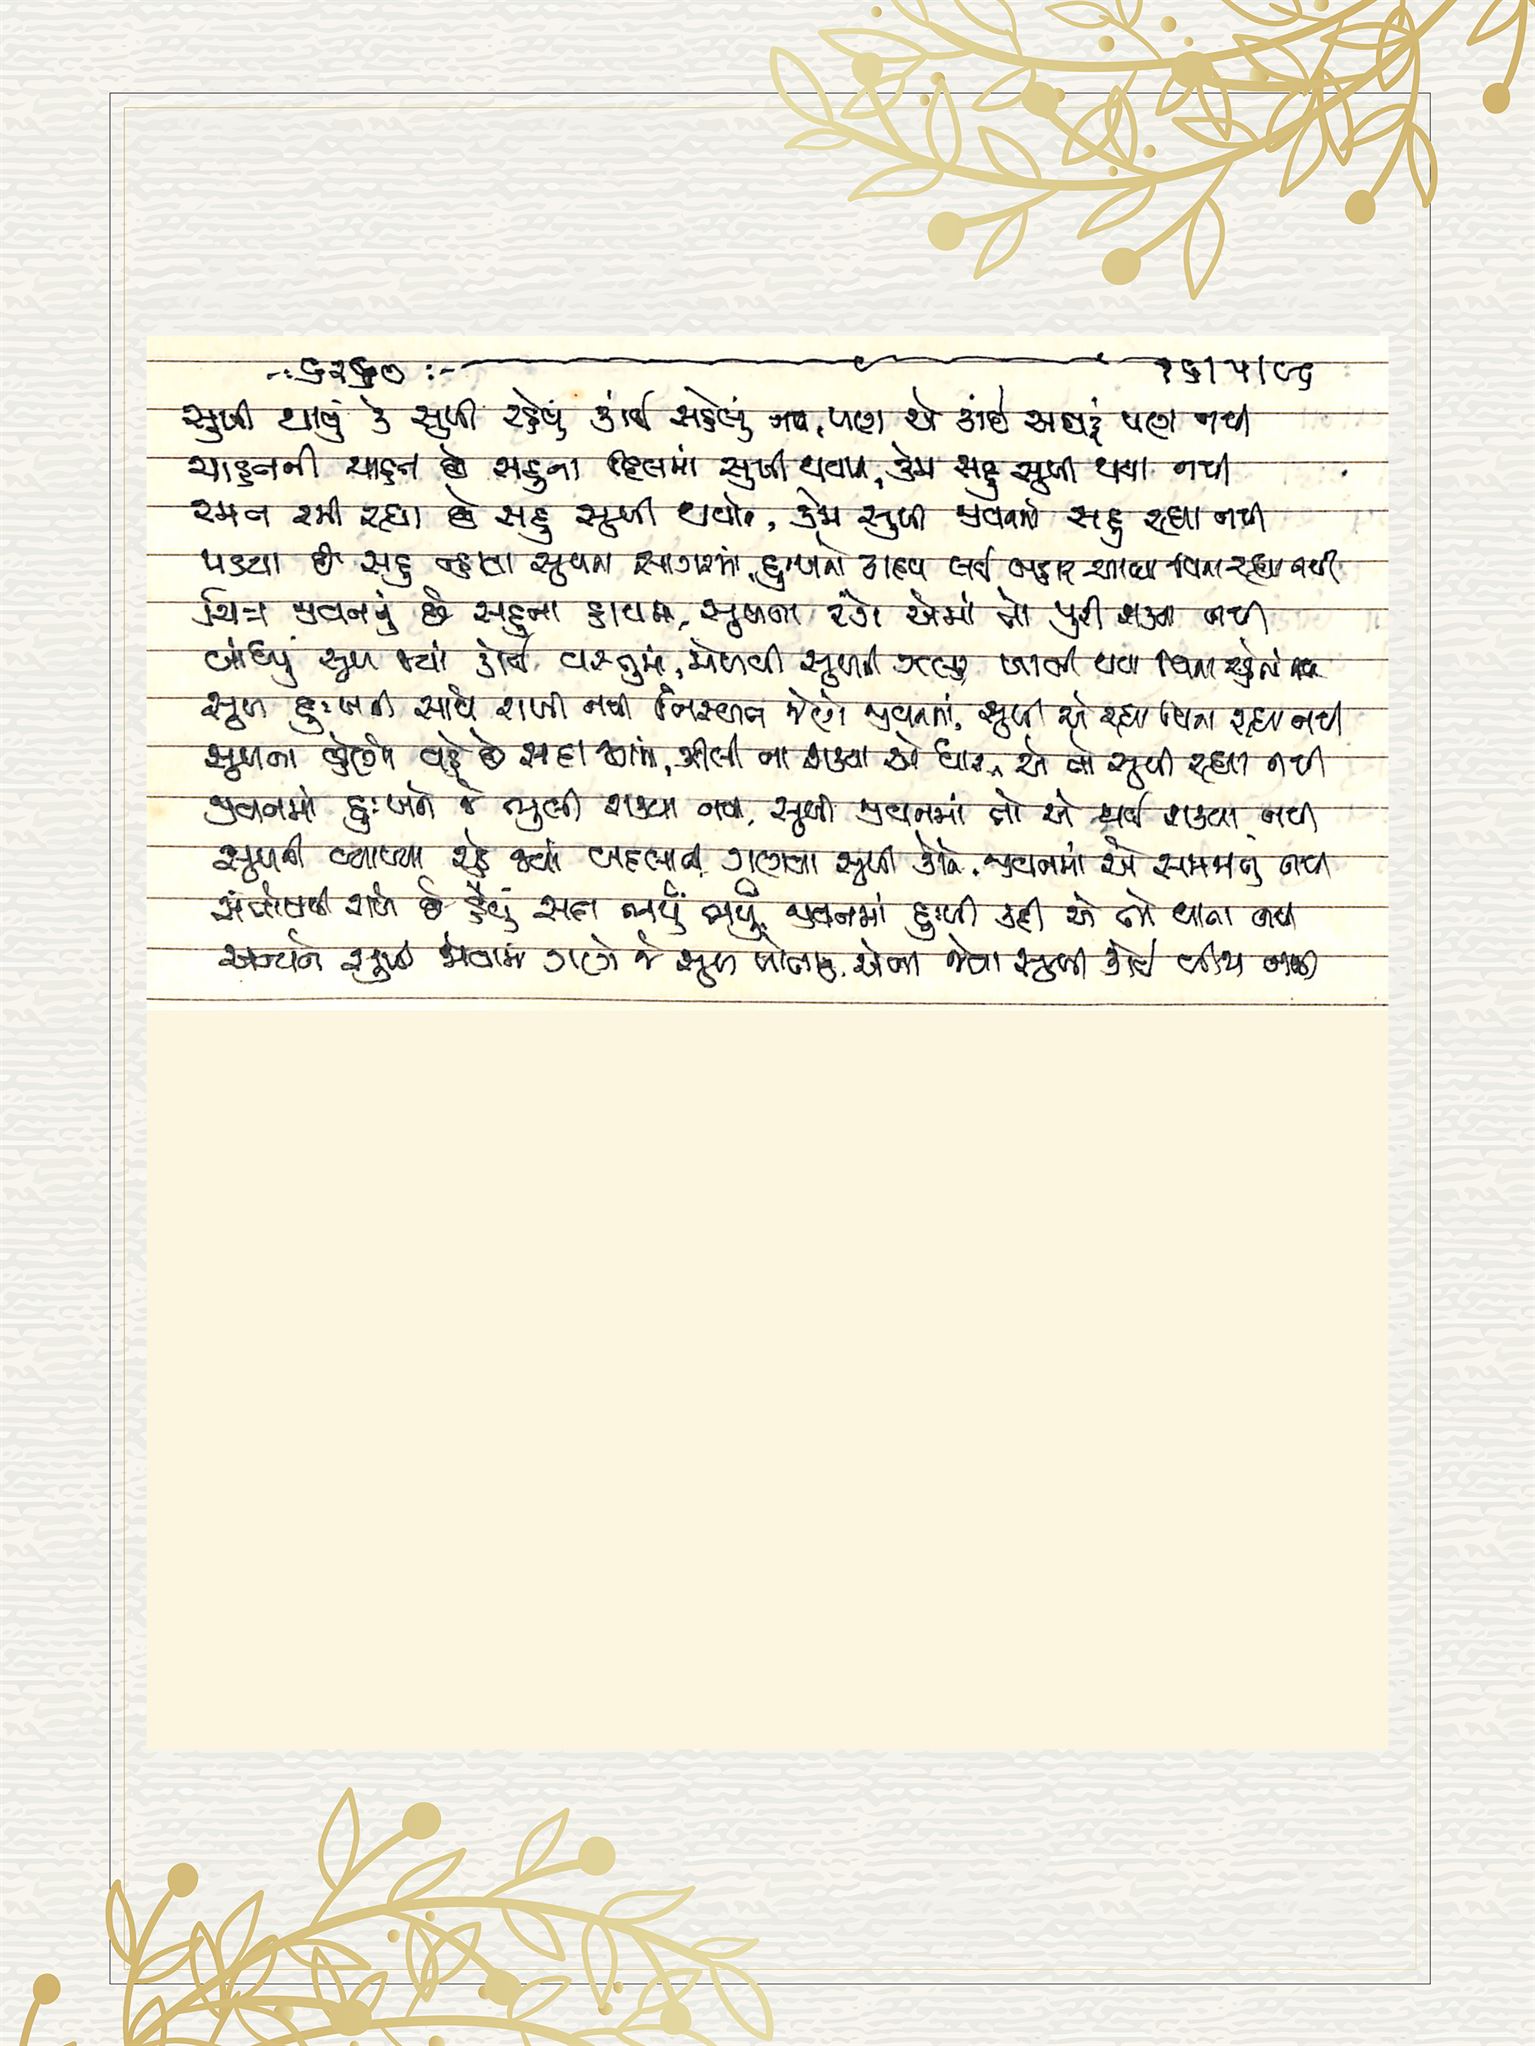 -: ૬૨૬૭ :- ૧૬/૫/૮૬
સુખી થાવું કે સુખી રહેવું કાંઈ સહેલું નથી, પણ એ કાંઈ અઘરૂં પણ નથી
ચાહનની ચાહન છે સહુના દિલમાં સુખી થવાની, કેમ સહુ સુખી થયા નથી
રમત રમી રહ્યા છે સહુ સુખી થવાની, કેમ સુખી જીવનમાં સહુ રહ્યા નથી
પડયા છે સહુ જ્યાં સુખના સાગરમાં, દુઃખનો કાદવ લઈ બહાર આવ્યા વિના રહ્યા નથી
ચિત્ર જીવનનું છે સહુના હાથમાં, સુખના રંગો એમાં તો પુરી શક્યા નથી
બાંધ્યું સુખ જ્યાં કોઈ વસ્તુમાં, મેળવી સુખની ઝલક, ખાલી થયા વિના રહેતાં નથી
સુખ દુઃખની સાથે રાખી નથી નિસ્બત જેણે જીવનમાં, સુખી એ રહ્યા વિના રહ્યા નથી
સુખના સ્રોત વહે છે સદા જગમાં, ઝીલી ના શક્યા એ ધારા, એ તો સુખી રહ્યા નથી
જીવનમાં દુઃખને જે ભુલી શક્યા નથી, સુખી જીવનમાં તો એ થઈ શક્યા નથી
સુખની વ્યાખ્યા રહે જ્યાં બદલાતી, ગણવા સુખી કોને, જીવનમાં એ સમજાતું નથી
સંતોષથી રાખે છે હૈયું સદા ભર્યું ભર્યું, જીવનમાં દુઃખી કદી એ તો થાતા નથી
અન્યને સુખી જોવામાં ગણે જે સુખ પોતાનું, એના જેવા સુખી કોઈ હોય નથી